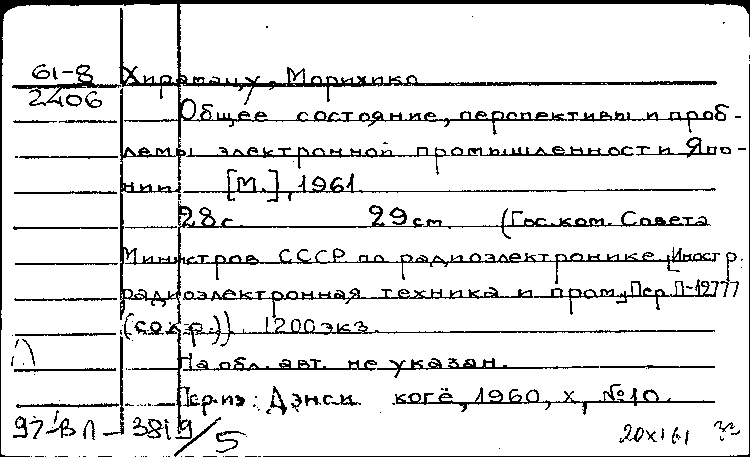 61-8 Хирамацу, Морихико
2406
Общее состояние, перспективы и проб-
лемы электронной промышленности Япо-
нии [М.], 1961.
28 с. 29 см. (Гос. ком. Совета
Министров СССР по радиоэлектронике. Иностр.
радиоэлектронная техника и пром., Пер. П-12777
(сокр.)) 1200 экз.
На обл. авт. не указан.
Пер. из: Дэнси когё, 1960, X, №10.
97-ВП-3819/5 20X161